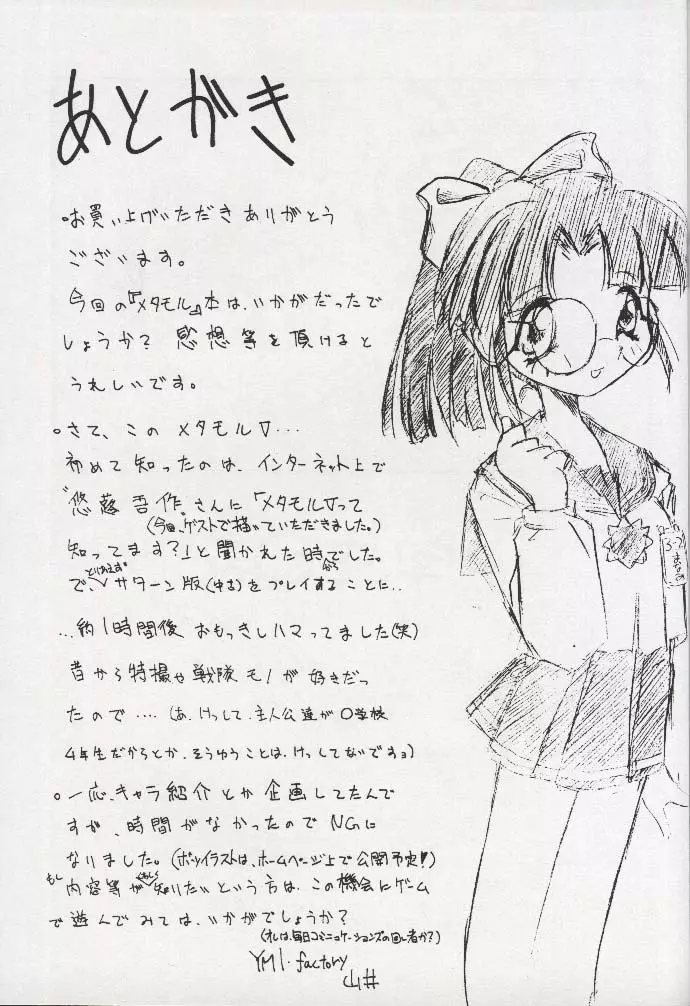 あとがき
・お買い上げいただきありがとう
ございます。
今回の『メタモル』本は、いかがだったで
しょうか? 感想等を頂けると
うれしいです。
○さて、このメタモルV・・・
初めて知ったのは、インターネット上で
"悠藤吾作"さんに「メタモルVって
(今回、ゲストで描いていただきました。)
知ってます?」と聞かれた時でした。
で、とりあえずサターン版(中古)をプレイすることに‥
…約1時間後 おもっきしハマってました(笑)
昔から特撮や戦隊モノが好きだっ
たので‥‥(あ、けっして、主人公達が○学校
4年生だからとか、そうゆうことは、けっしてないですョ)
○一応、キャラ紹介とか企画してたんで
すが、時間がなかったのでNGに
なりました。(ボツイラストは、ホームページ上で公開予定!)
もし内容等がくわしく知りたいという方は、この機会にゲーム
で遊んでみては、いかがでしょうか?
(オレは、毎日コミュニケーションズの回し者か?)
YMI・factory
山井